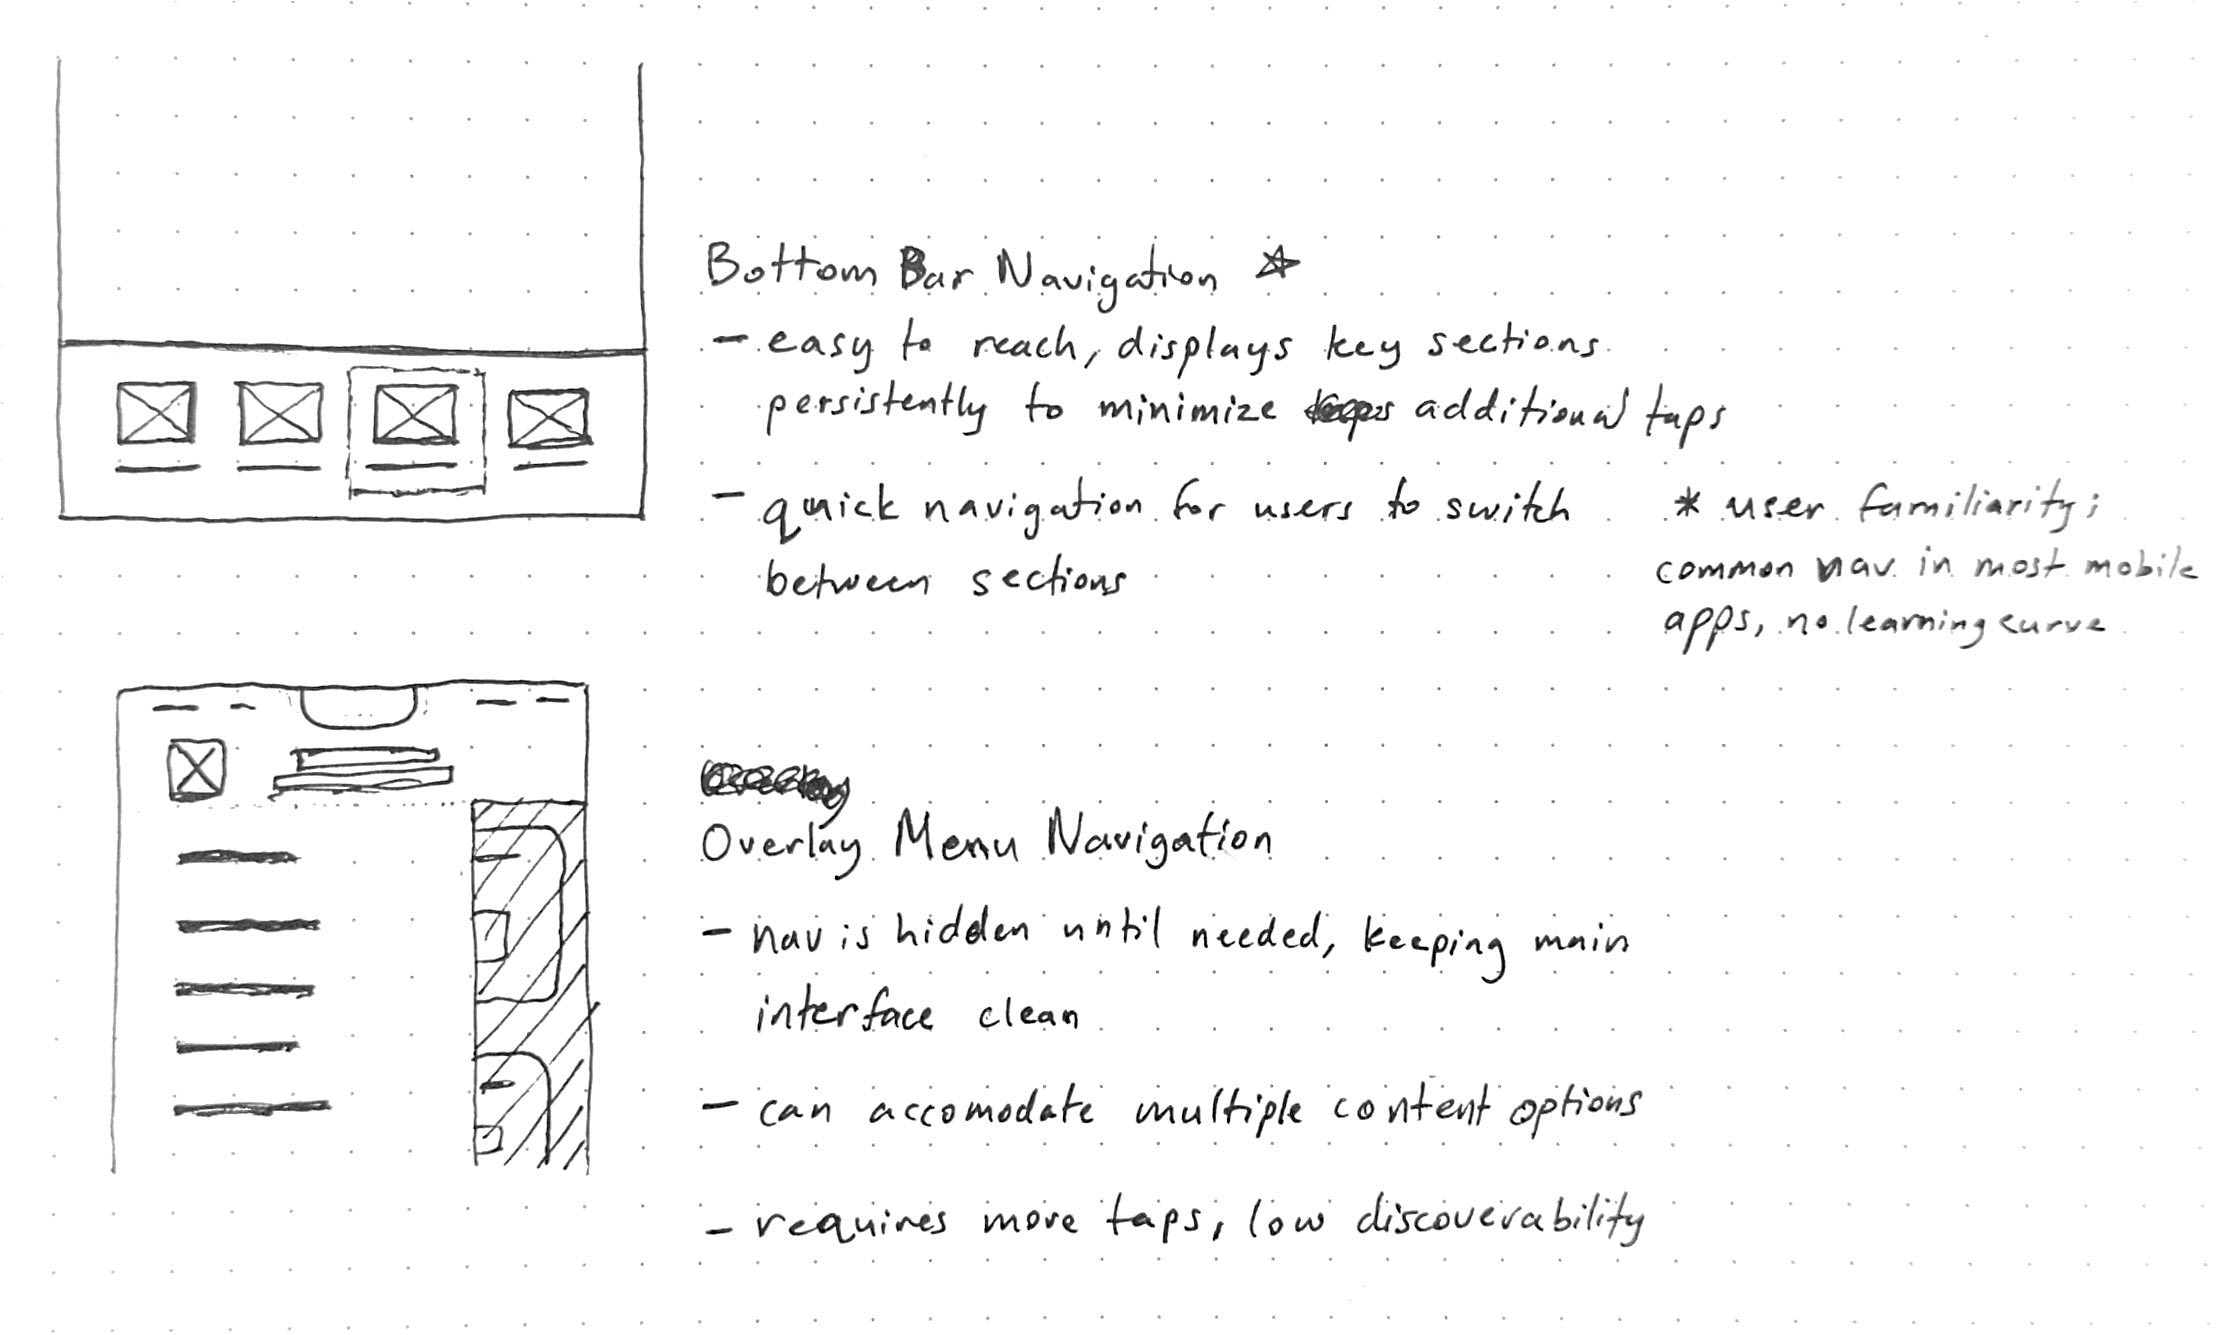 Bottom Bar Navigation ☆
- easy to reach, displays key sections
persistently to minimize additional taps
- quick navigation for users to switch
between sections
* user familiarity;
common nav in most mobile
apps, no learning curve
Overlay Menu Navigation
- nav is hidden until needed, keeping main
interface clean
- can accomodate multiple content options
- requires more taps, low discoverability